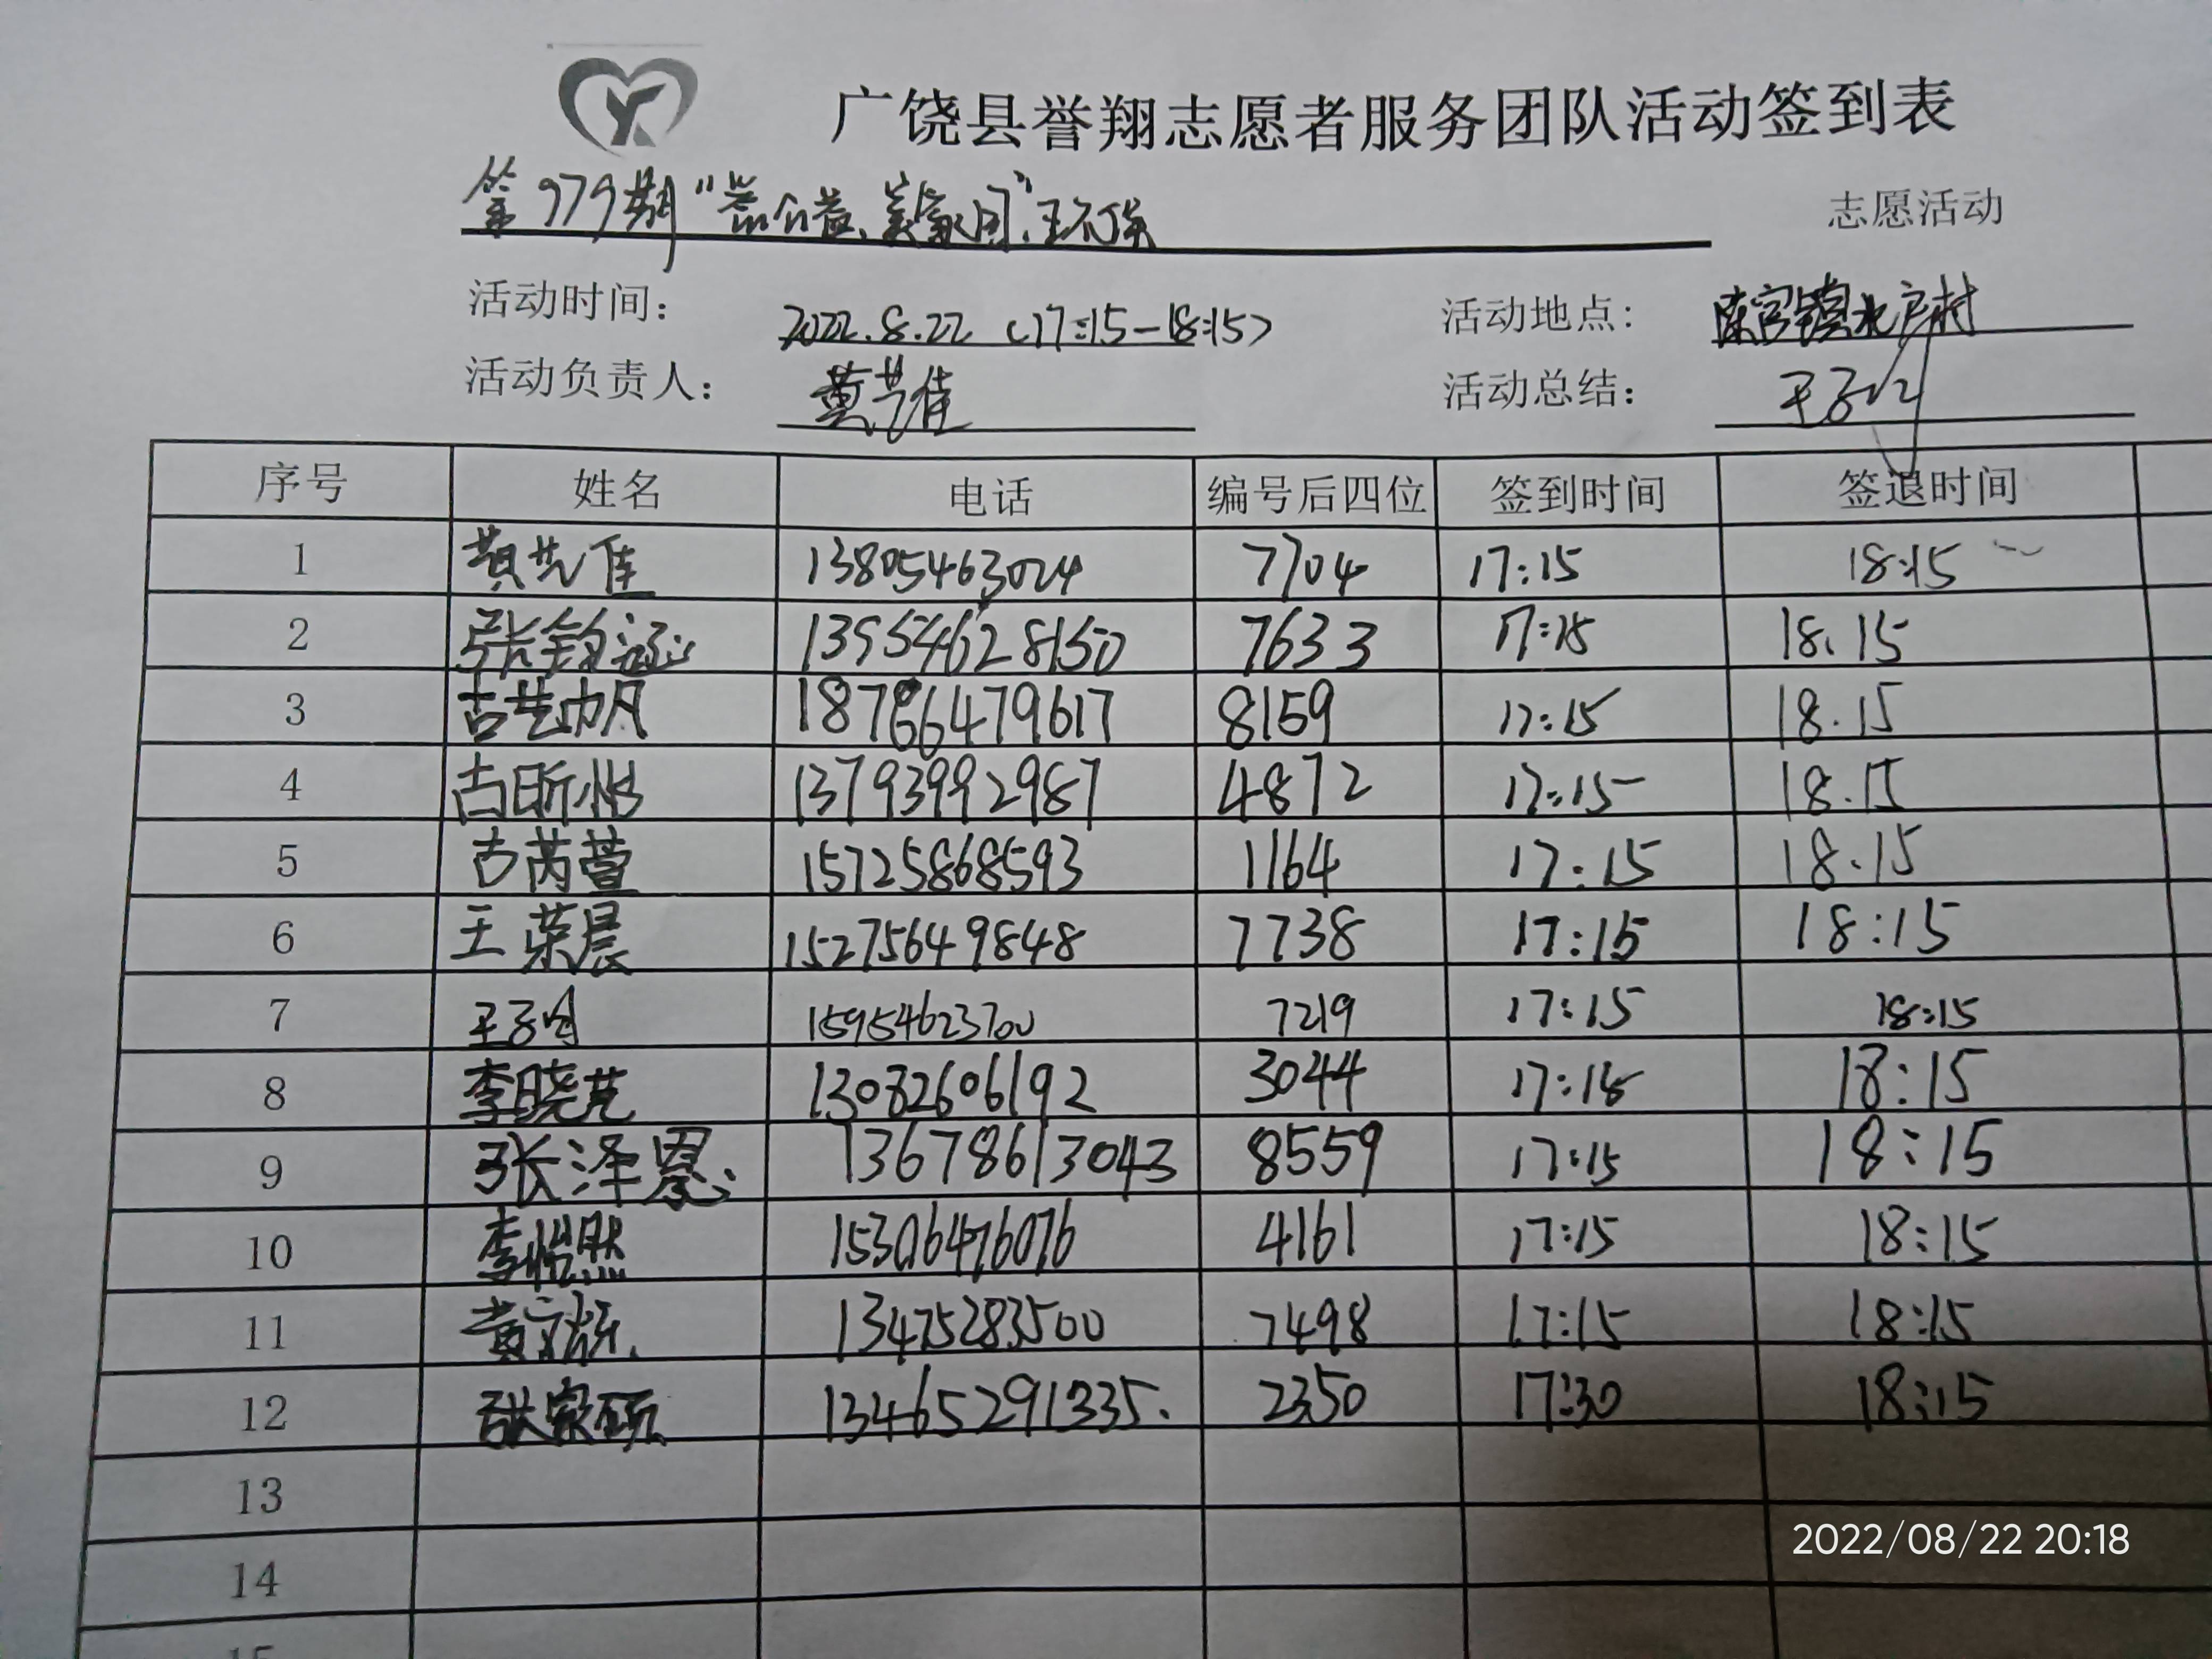 广饶县誉翔志愿者服务团队活动签到表
第979期 志愿活动
活动时间： 2022.8.22（17:15-18:15） 活动地点：
活动负责人： 黄艺佳 活动总结：
序号 姓名 电话 编号后四位 签到时间 签退时间
1 黄艺佳 13805463024 7704 17:15 18:15
2 张 13954628150 7633 17:15 18.15
3 古艺帆 18766479617 8159 17:15 18.15
4 古昕怡 13793992987 4872 17:15 18.15
5 古芮萱 15725868593 1164 17:15 18.15
6 王荣晨 15275649848 7738 17:15 18:15
7 王子 15954623700 7219 17:15 18:15
8 李晓艺 13082606192 3044 17:15 18:15
9 张泽恩 13678613043 8559 17:15 18:15
10 李怡然 15306476076 4161 17:15 18:15
11 黄 13475283500 7498 17:15 18:15
12 张家硕 13465291335. 2350 17:30 18:15
13
14
15
2022/08/22 20:18